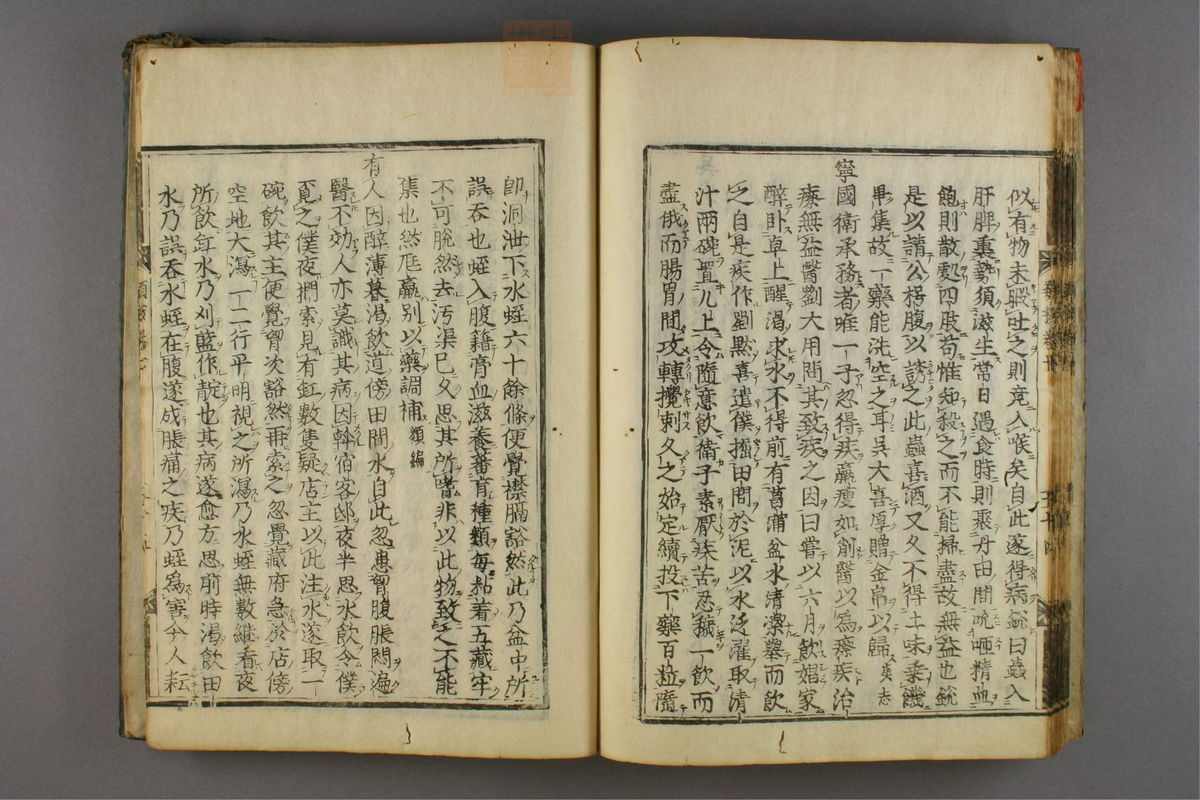 似有物未暇吐之則竟入喉矣自此遂得病銳曰蟲入
肝脾裏勢須滋生常日過食時則聚丹田間吮咂精血
飽則散處四肢苟惟知殺之而不能掃盡故無益也銳
是以請公枵腹以誘之此蟲喜酒又久不得土味乘饑
畢集故一藥能洗空之耳呉大喜厚贈金帛以歸夷志
寧國衛承務者唯一子忽得疾羸瘦如削醫以為瘵疾治
療無益醫劉大用問其致疾之因曰嘗以六月飲娼家
醉臥卓上醒渴求水不得前有菖蒲盆水清潔擧而飲
之自是疾作劉黙喜遣僕掘田間於泥以水泛濯取清
汁兩碗置几上令隨意飲衛子素厭疾苦忍穢一飲而
盡俄而腸胃間攻轉攪刺久之始定續投下藥百粒隨
即洞泄下水蛭六十餘條便覺襟膈豁然此乃盆中所
誤呑也蛭入腹籍膏血滋養蕃育種類毎黏着五藏牢
不可脫然去汚渠已久思其所嗜非以此物致之不能
集也然尫羸別以藥調補類編
有人因醉薄暮渇飲道傍田間水自此忽患胷腹脹悶遍
醫不効人亦莫識其病因幹宿客邸夜半思水飲令僕
覓之僕夜捫索見有缸數隻疑店主以此注水遂取一
碗飲其主便覺胷次豁然再索之忽覺藏府急於店傍
空地大瀉一二行平明視之所瀉乃水蛭無數継看夜
所飲缸水乃刈藍作靛也其病遂愈方思前時渇飲田
水乃誤呑水蛭在腹遂成脹痛之疾乃蛭為害今人耘